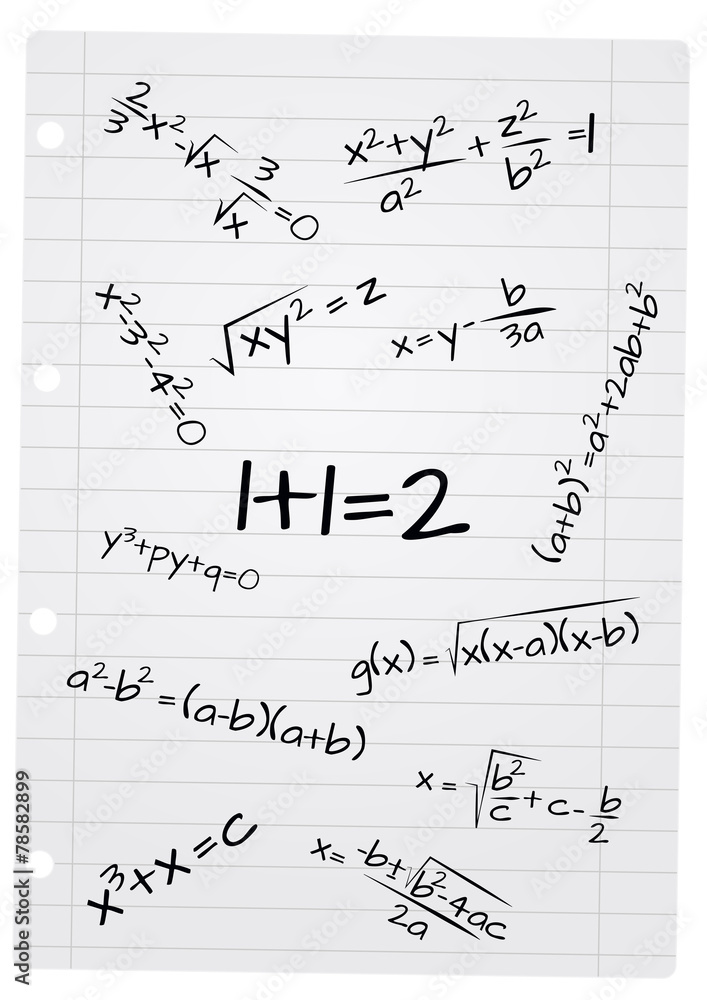 2/3 x² - √x 3/√x = 0
(x²+y²)/a² + z²/b² = 1
x² - 3² - 4² = 0
√xy² = z
x = y - b/3a
(a+b)² = a²+2ab+b²
1+1=2
y³+py+q=0
g(x) = √x(x-a)(x-b)
a²-b² = (a-b)(a+b)
x = √b²/c + c - b/2
x³xx = c
x = -b±√b²-4ac/2a
Adobe Stock | #78582899